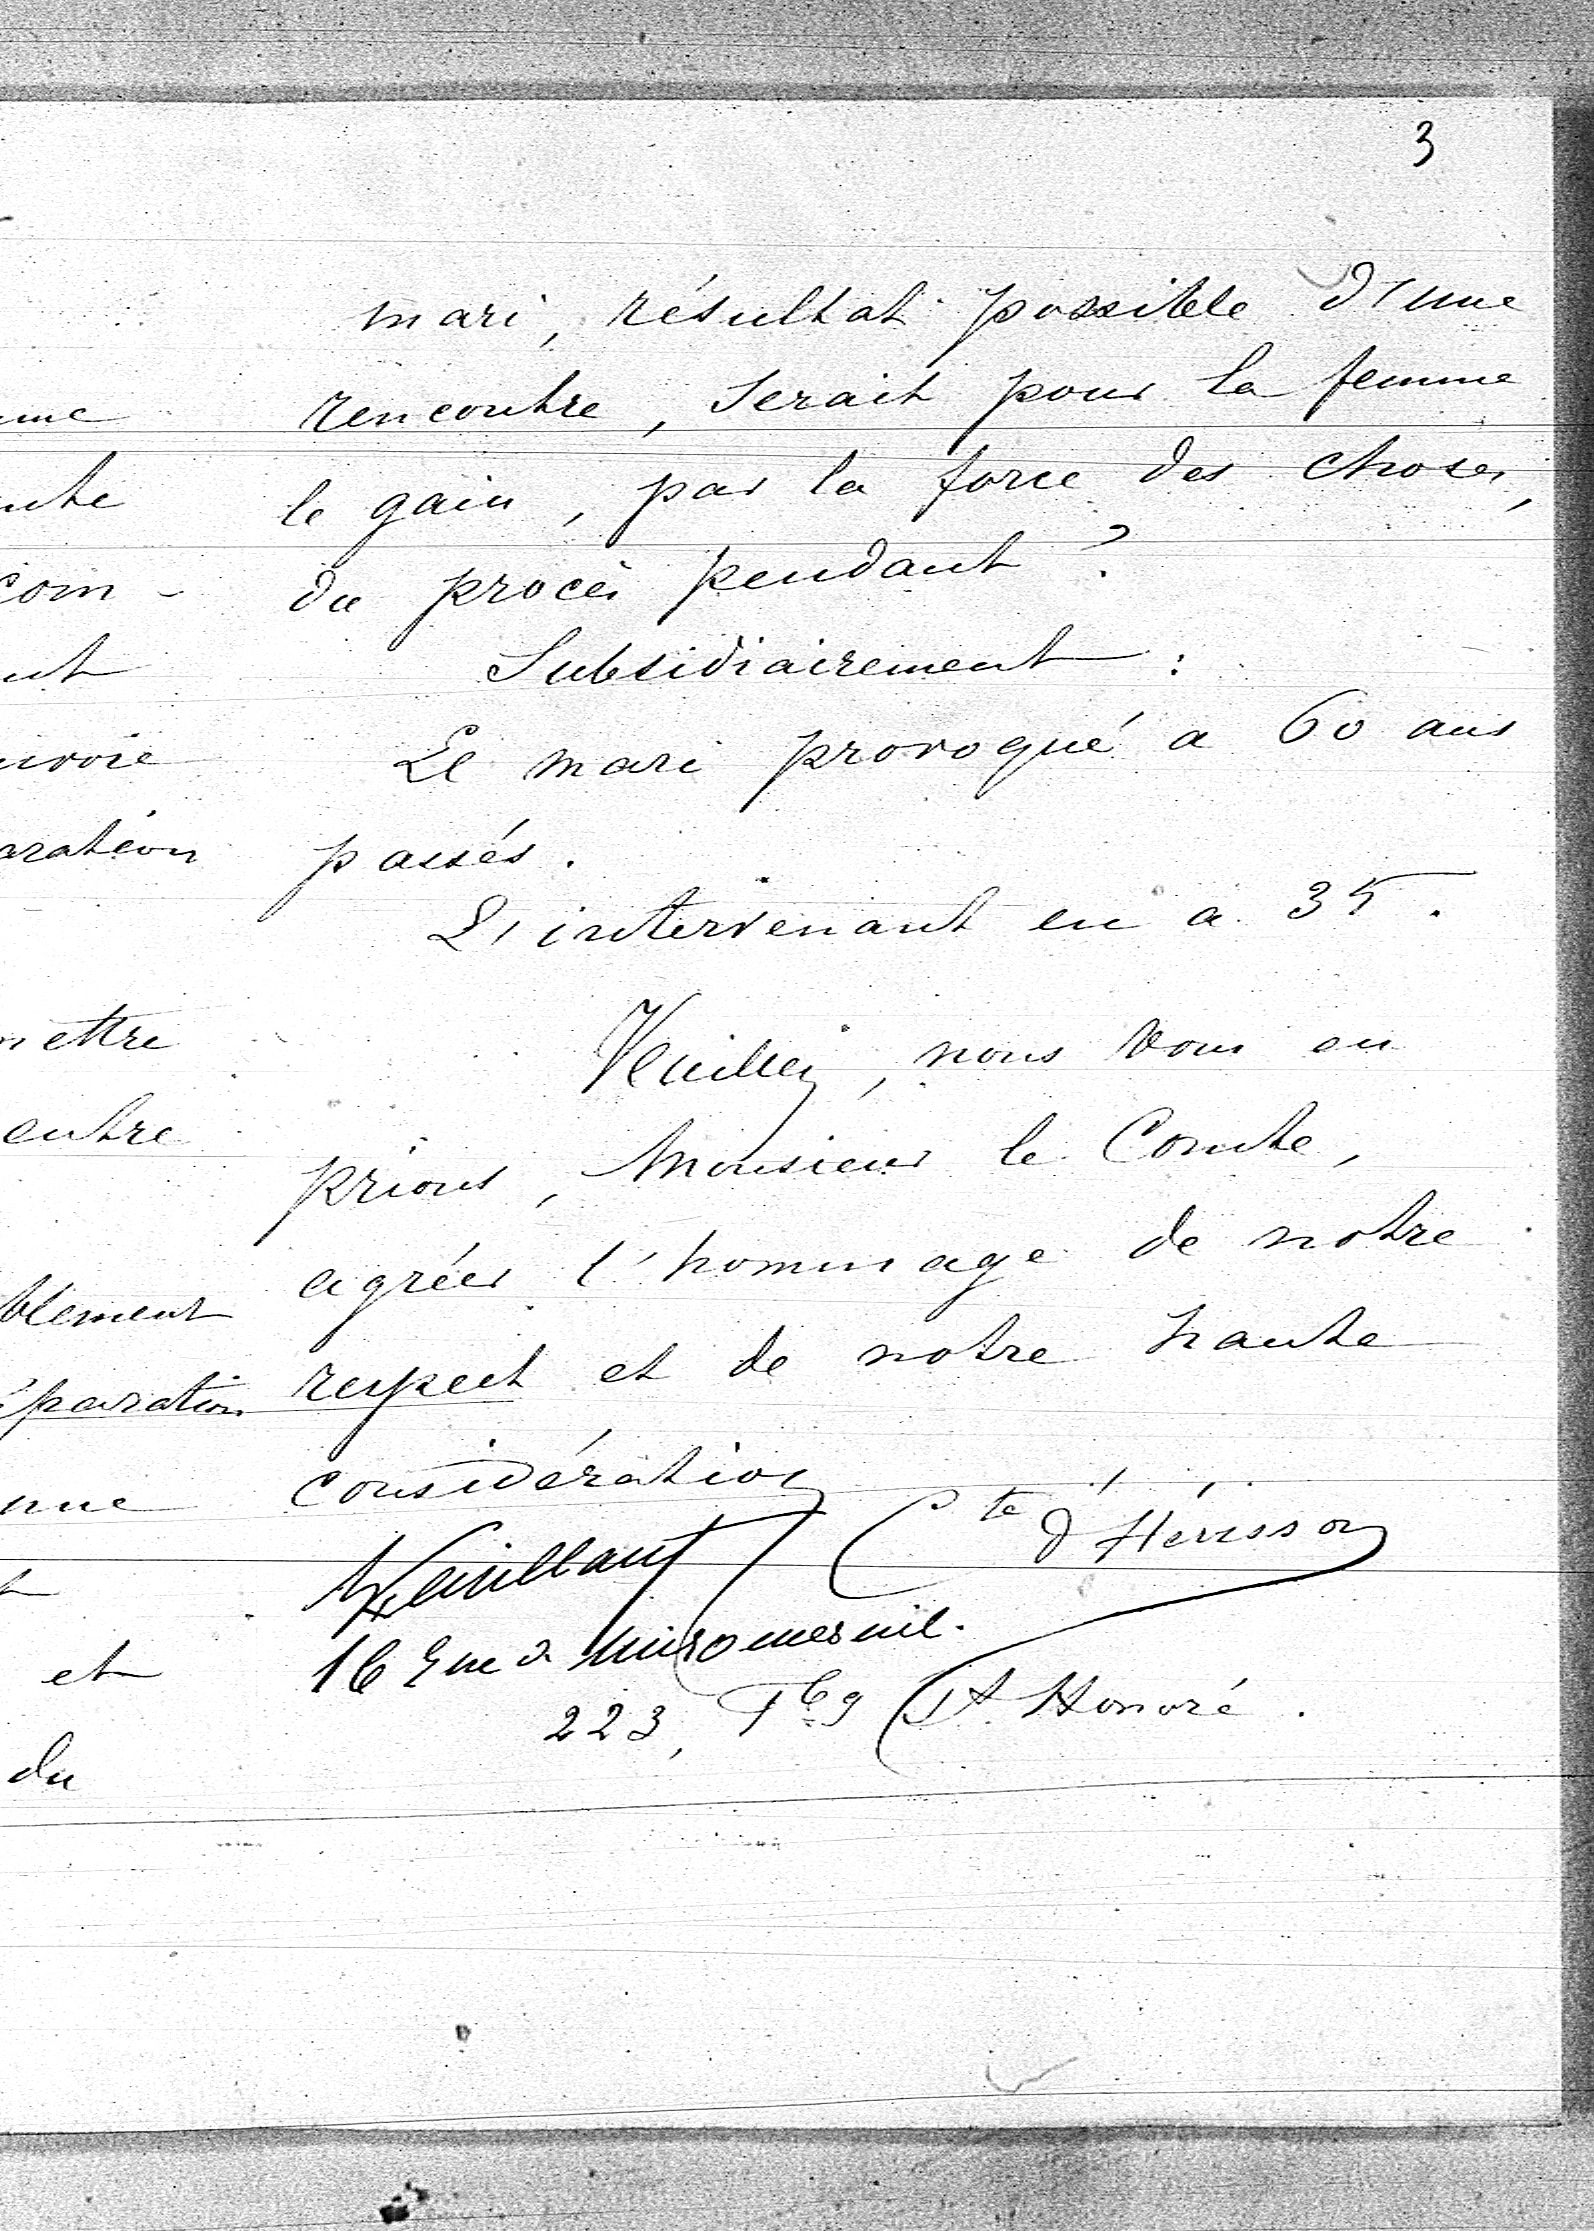 3
mari, résultat possible d'une
rencontre, serait pour la femme
le gain, par la force des choses,
du procès pendant ?
Subsidiairement :
Le mari provoqué a 60 ans
passés.
L'intervenant en a 35.
Veuillez, nous vous en
prions, Monsieur le Comte,
agréer l'hommage de notre
respect et de notre haute
considération
Cte d'Hérisson
Vaillant
16 rue de Miromesnil.
223, Fbg St Honoré.
ame
coin -
nvoie
aration
mettre
entre
blement
éparation
et
du